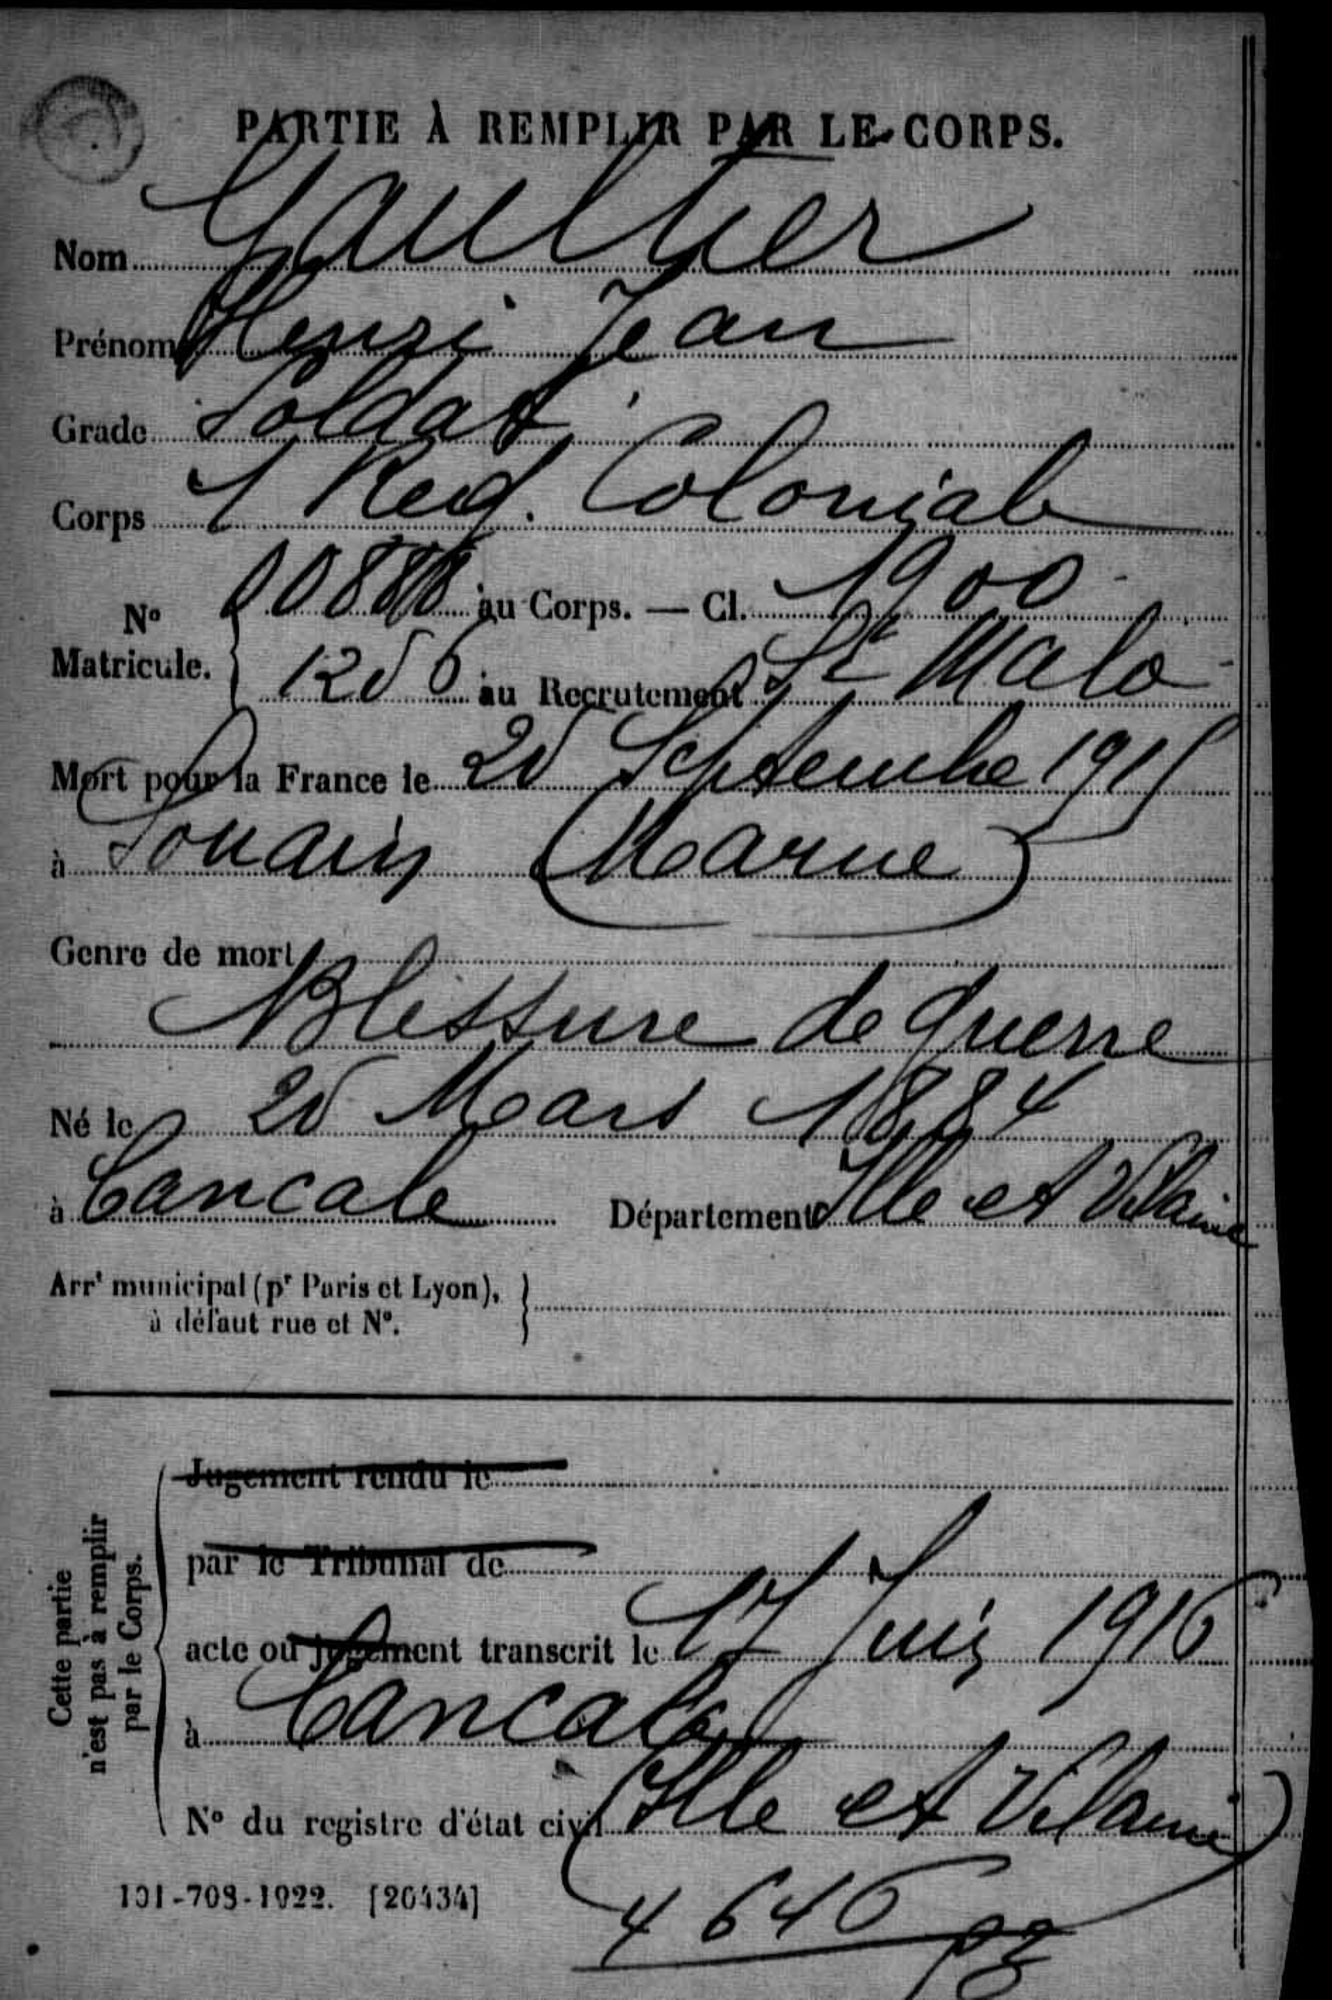 PARTIE À REMPLIR PAR LE CORPS.
Nom Gaultier
Prénom Henri Jean
Grade Soldat
Corps 1 Reg. Colonial
No Matricule. { 00888 au Corps. — Cl. 1900
1256 au Recrutement St Malo
Mort pour la France le 25 Septembre 1915
à Souain (Marne)
Genre de mort
Blessure de guerre
Né le 25 Mars 1884
à Cancale Département Ille et Vilaine
Arrt municipal (pr Paris et Lyon),
à défaut rue et No.
Cette partie
n'est pas à remplir
par le Corps.
Jugement rendu le
par le Tribunal de
acte ou jugement transcrit le 17 Juin 1916
à Cancale
No du registre d'état civil (Ille et Vilaine)
101-708-1922. [26434]
4646